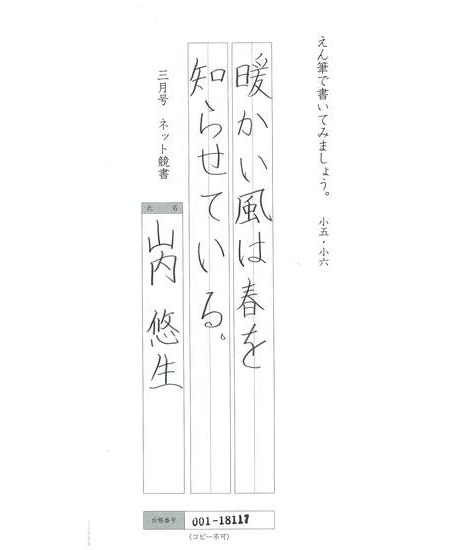 えん筆で書いてみましょう。 小五・小六
暖かい風は春を
知らせている。
三月号 ネット競書
氏名
山内 悠生
台帳番号 001-18117
(コピー不可)